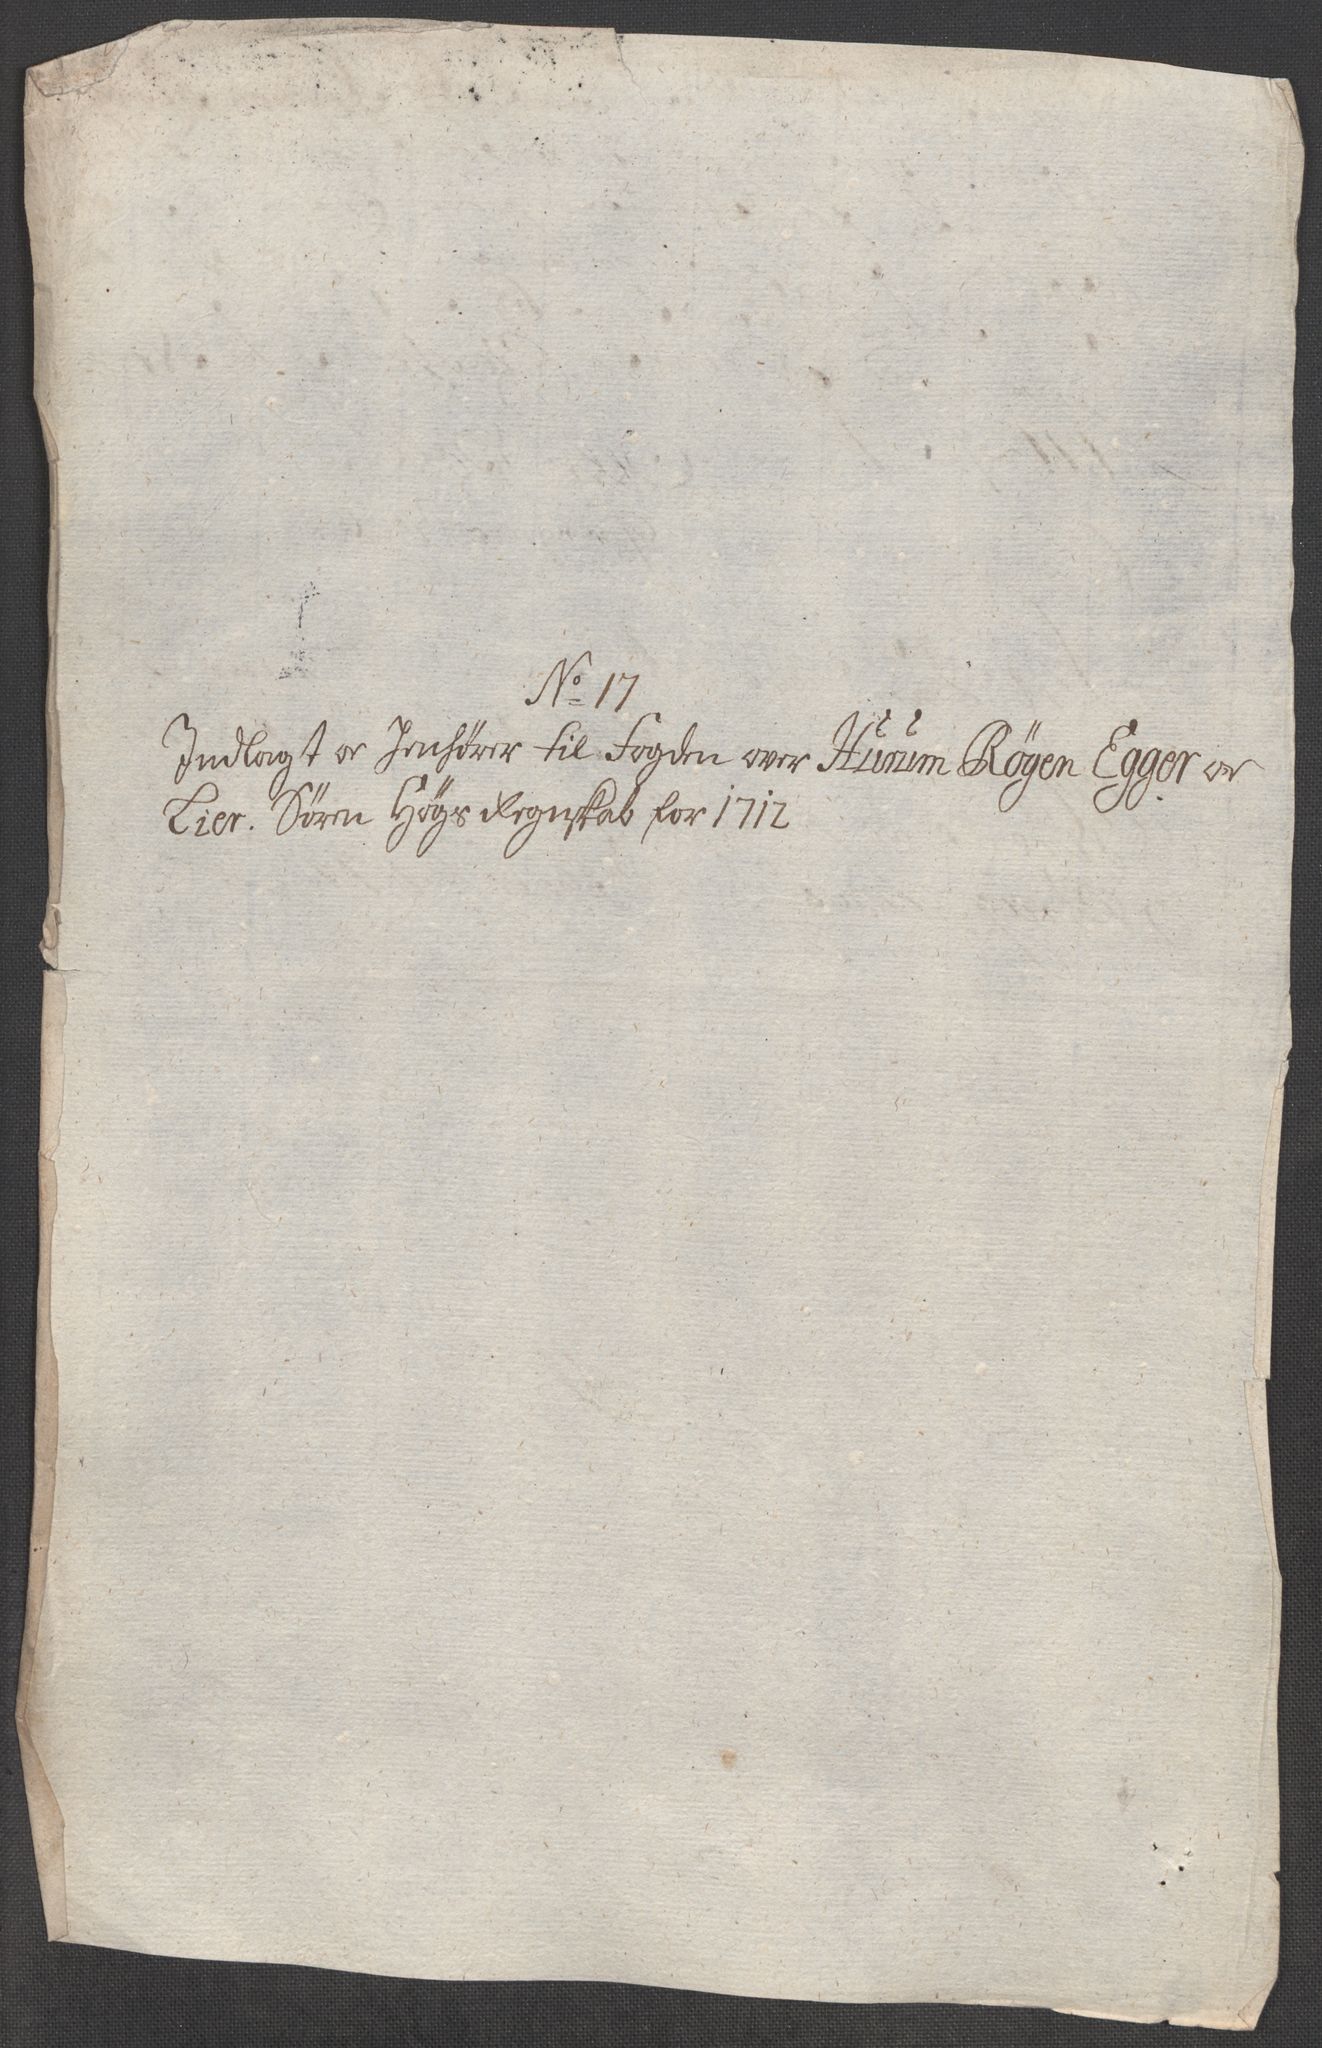 No 17
Indlagt oc henhörer til Fogden over Hurum Rögen Egger oc
Lier. Sören Högs Regnskab for 1712